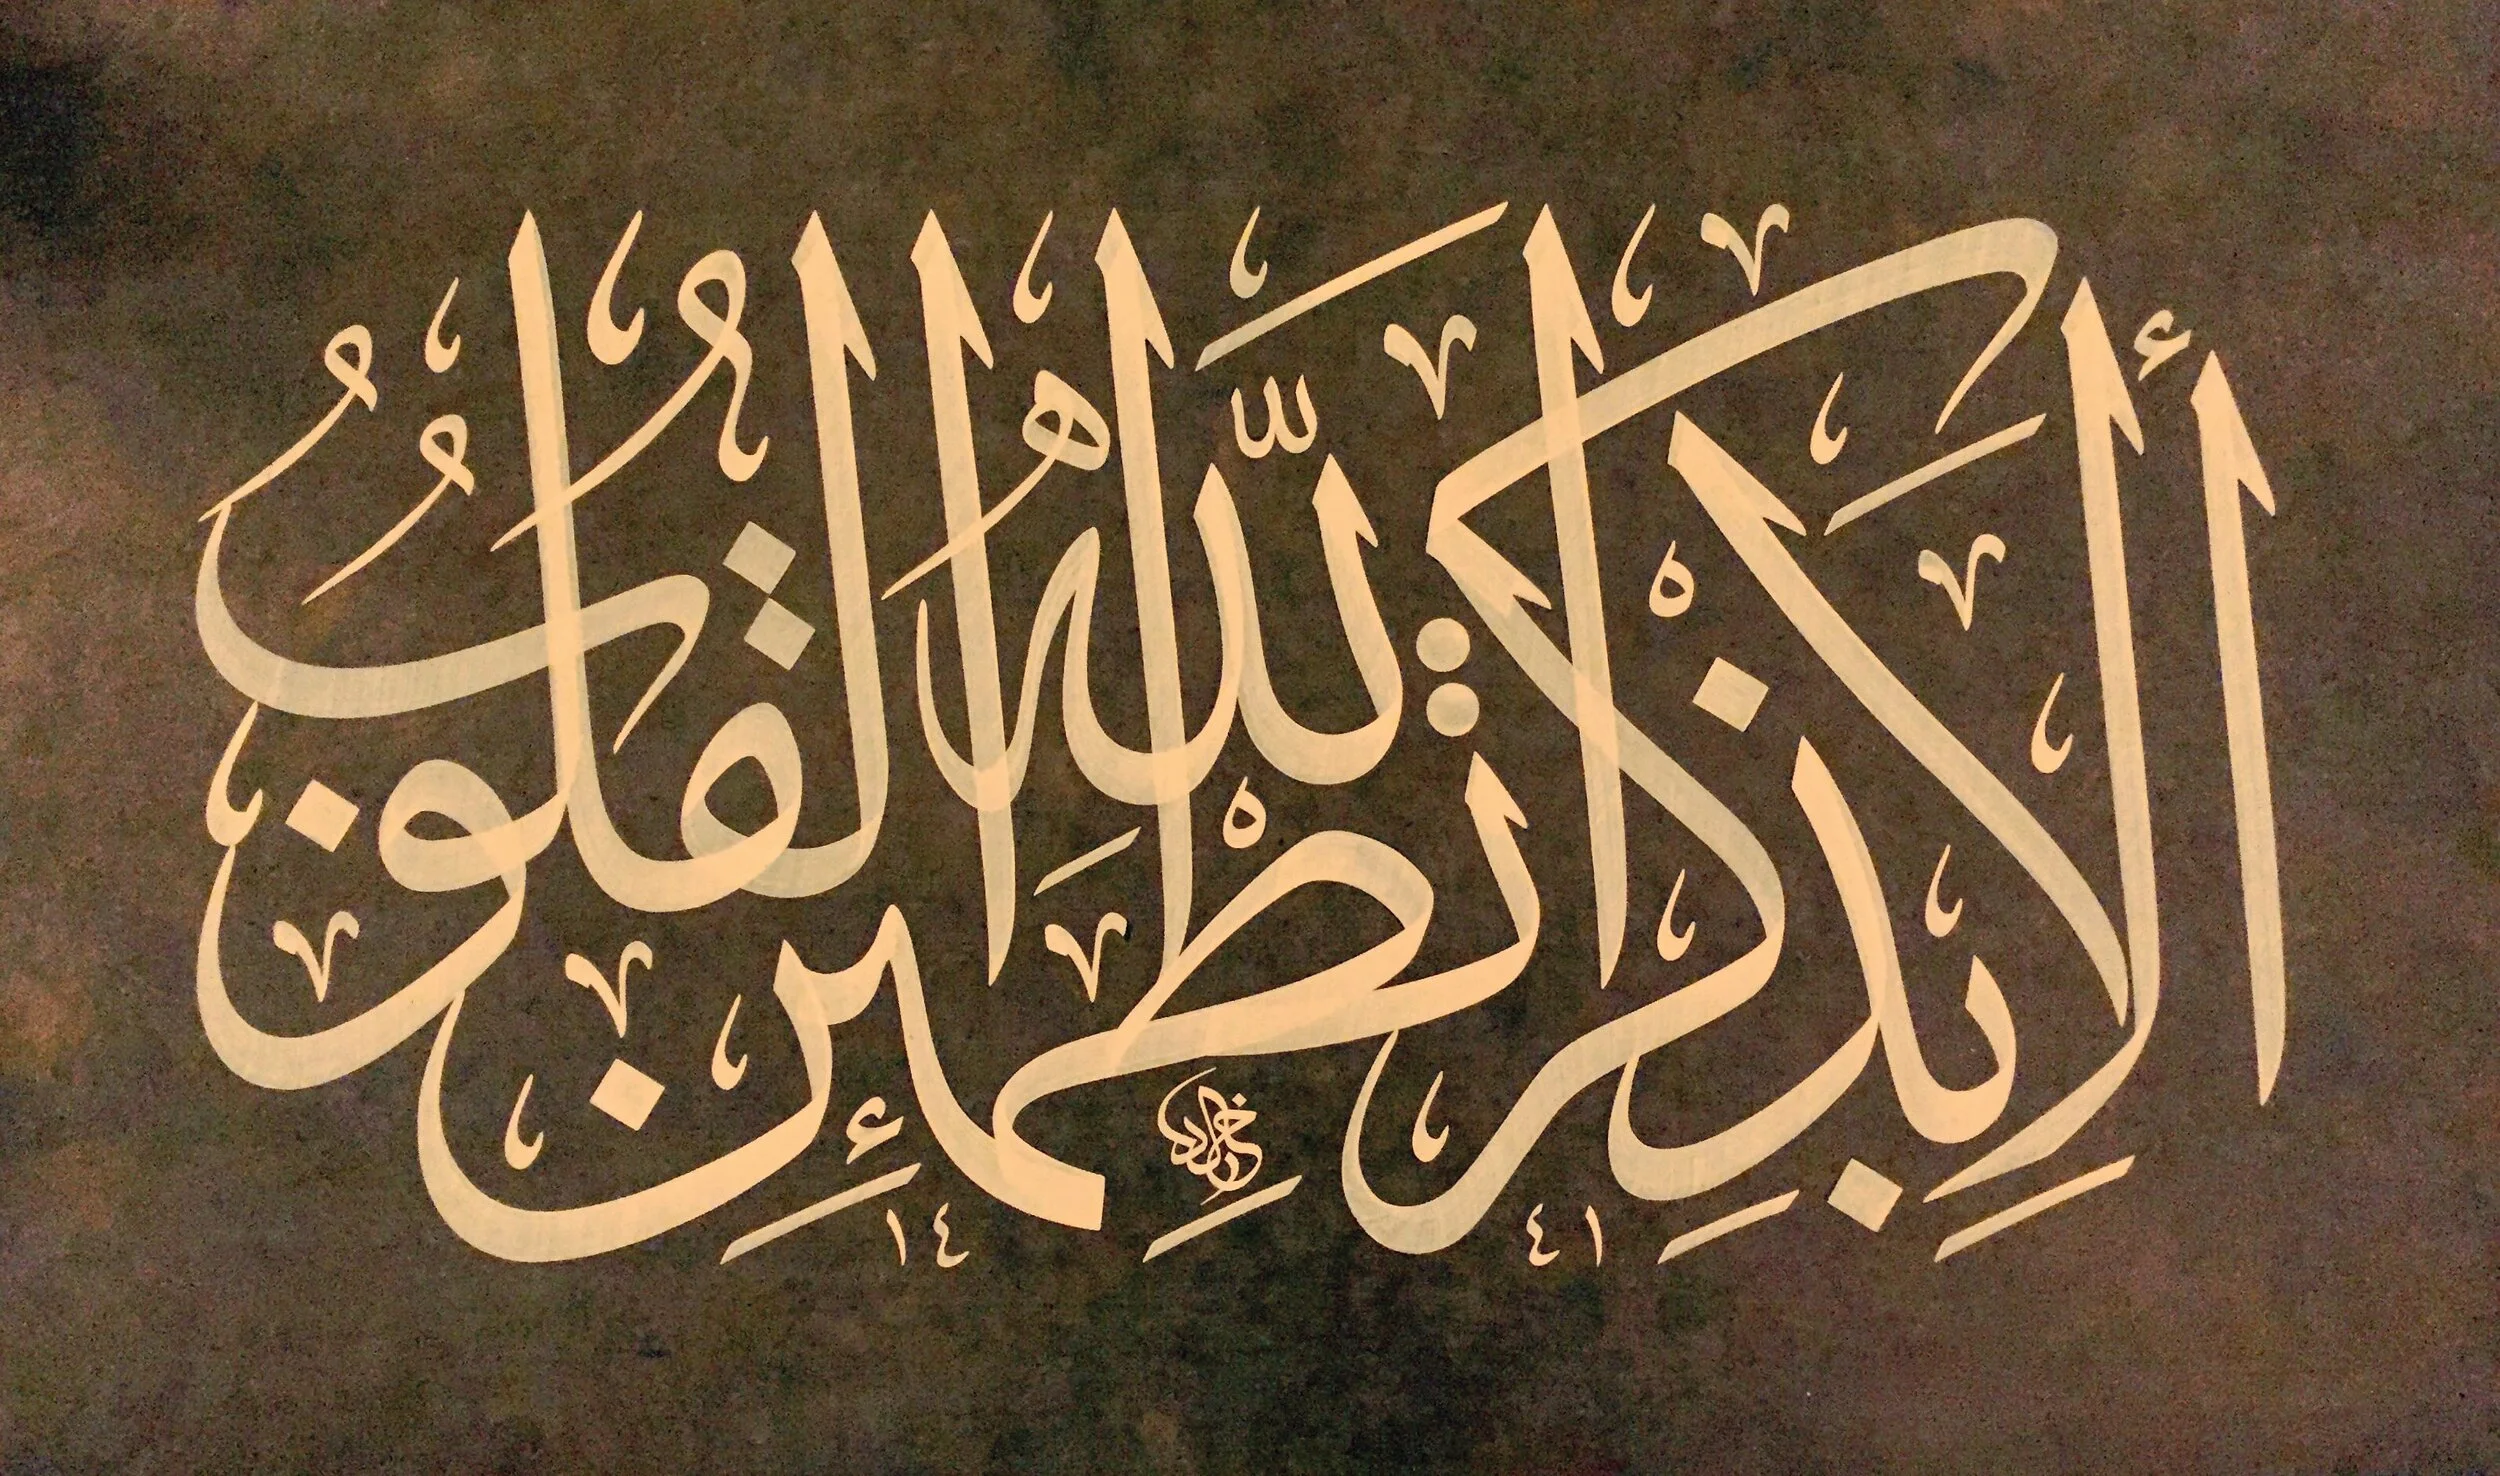 أَلَا بِذِكْرِ اللَّهِ تَطْمَئِنُّ الْقُلُوبُ
١٤ ٤١